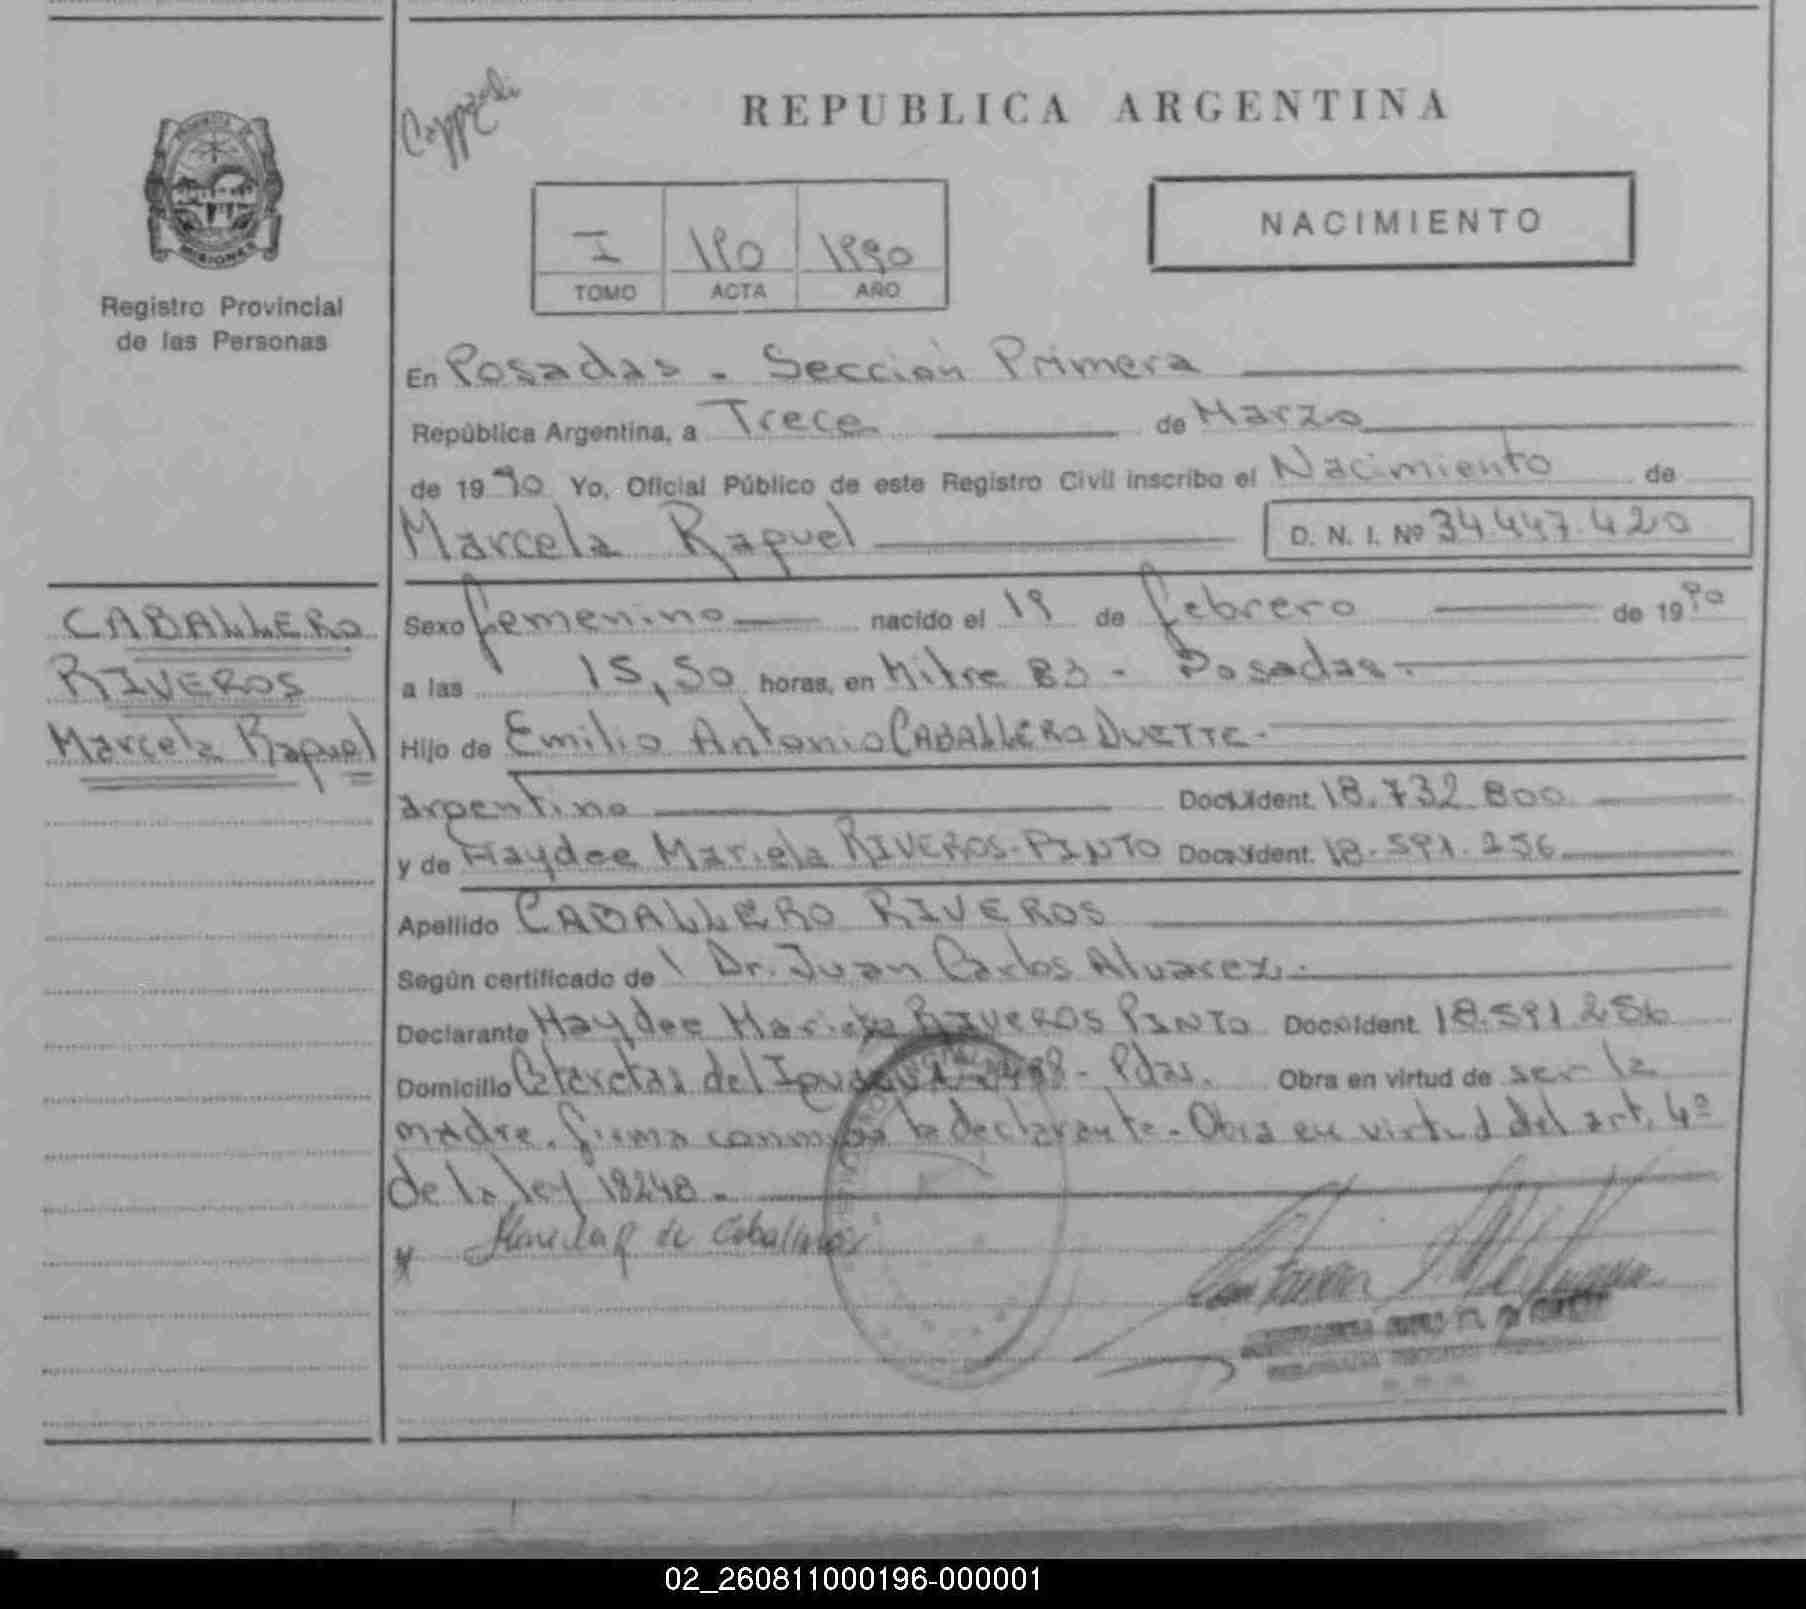 REPUBLICA ARGENTINA
NACIMIENTO
I 190 1990
TOMO ACTA AÑO
MISIONES
Registro Provincial
de las Personas
En Posadas - Sección Primera
República Argentina, a Trece de Marzo
de 1990 Yo, Oficial Público de este Registro Civil inscribo el Nacimiento de
Marcela Raquel D. N. I. Nº 34.447.420
CABALLERO
RIVEROS
Marcela Raquel
Sexo femenino nacido el 19 de febrero de 1990
a las 15,50 horas, en Mitre 83 - Posadas.
Hijo de Emilio Antonio CABALLERO DUETTE.
argentino Doc. Ident. 18.732.800
y de Haydee Mariela RIVEROS-PINTO Doc. Ident. 18.591.256
Apellido CABALLERO RIVEROS
Según certificado de Dr. Juan Carlos Alvarez.
Declarante Haydee Mariela RIVEROS PINTO Doc. Ident. 18.591.256
Domicilio Cataratas del Iguazú - Pdas. Obra en virtud de ser la
madre. firma conmigo la declarante - Obra en virtud del art. 4º
de la ley 18248.
de Caballero
02_260811000196-000001